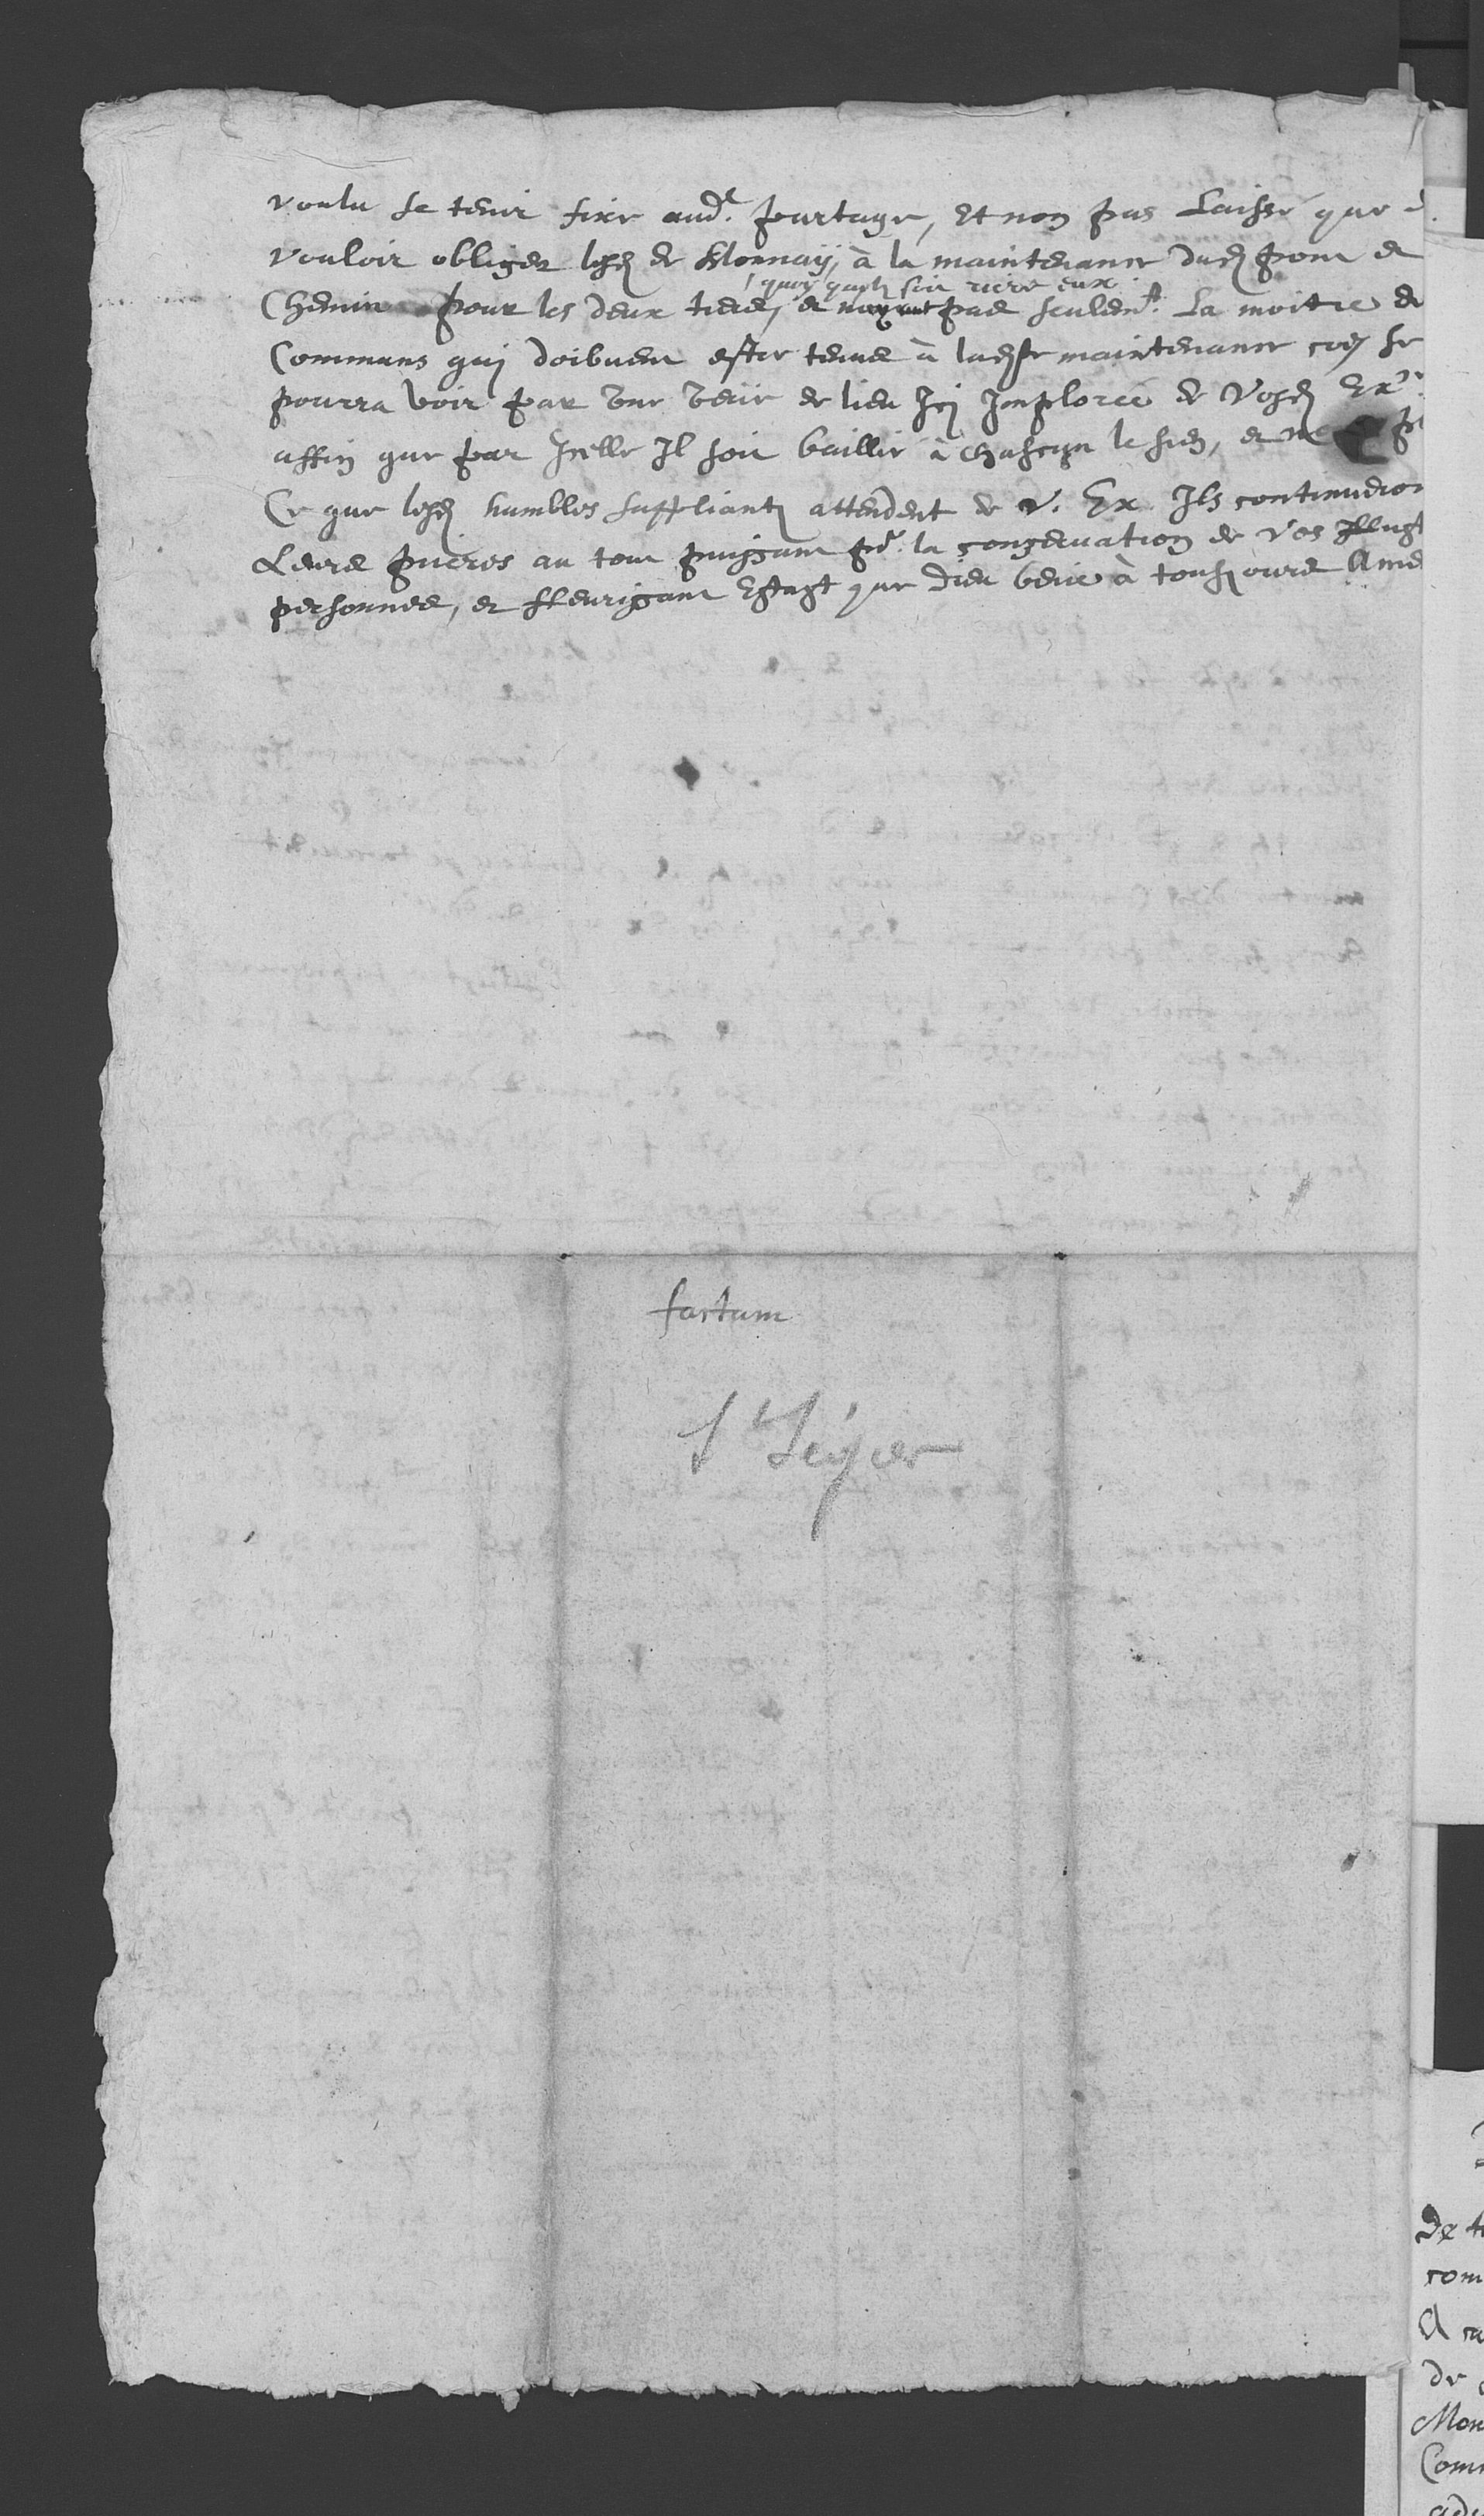 voulu se tenir fixe aud.t partage, Et non pas Laissé que d
vouloir obliger lesd de Blonnay, à la maintenance dud pont et
quoy quils soit riere eux
Chemin pour les deux tiers, et pas seulem.t La moitie de
Communs qui doibuent estre tenus à lad maintenance co se
pourra voir par une veüe de lieu Icy Implorée de Vosd Ex.ces
affin que par Icelle Il soit baillié à chascun le sien, et ne
Ce que lesd humbles suppliants attendent de V. Ex. Ils continueron
Leurs prieres au tout puissant pr. la conservation de Vos Illust
personnes, et fleurissant Estast que Dieu benie à tousjours Ame
factum
St Légier
De t
com
A
de
Mon
Com